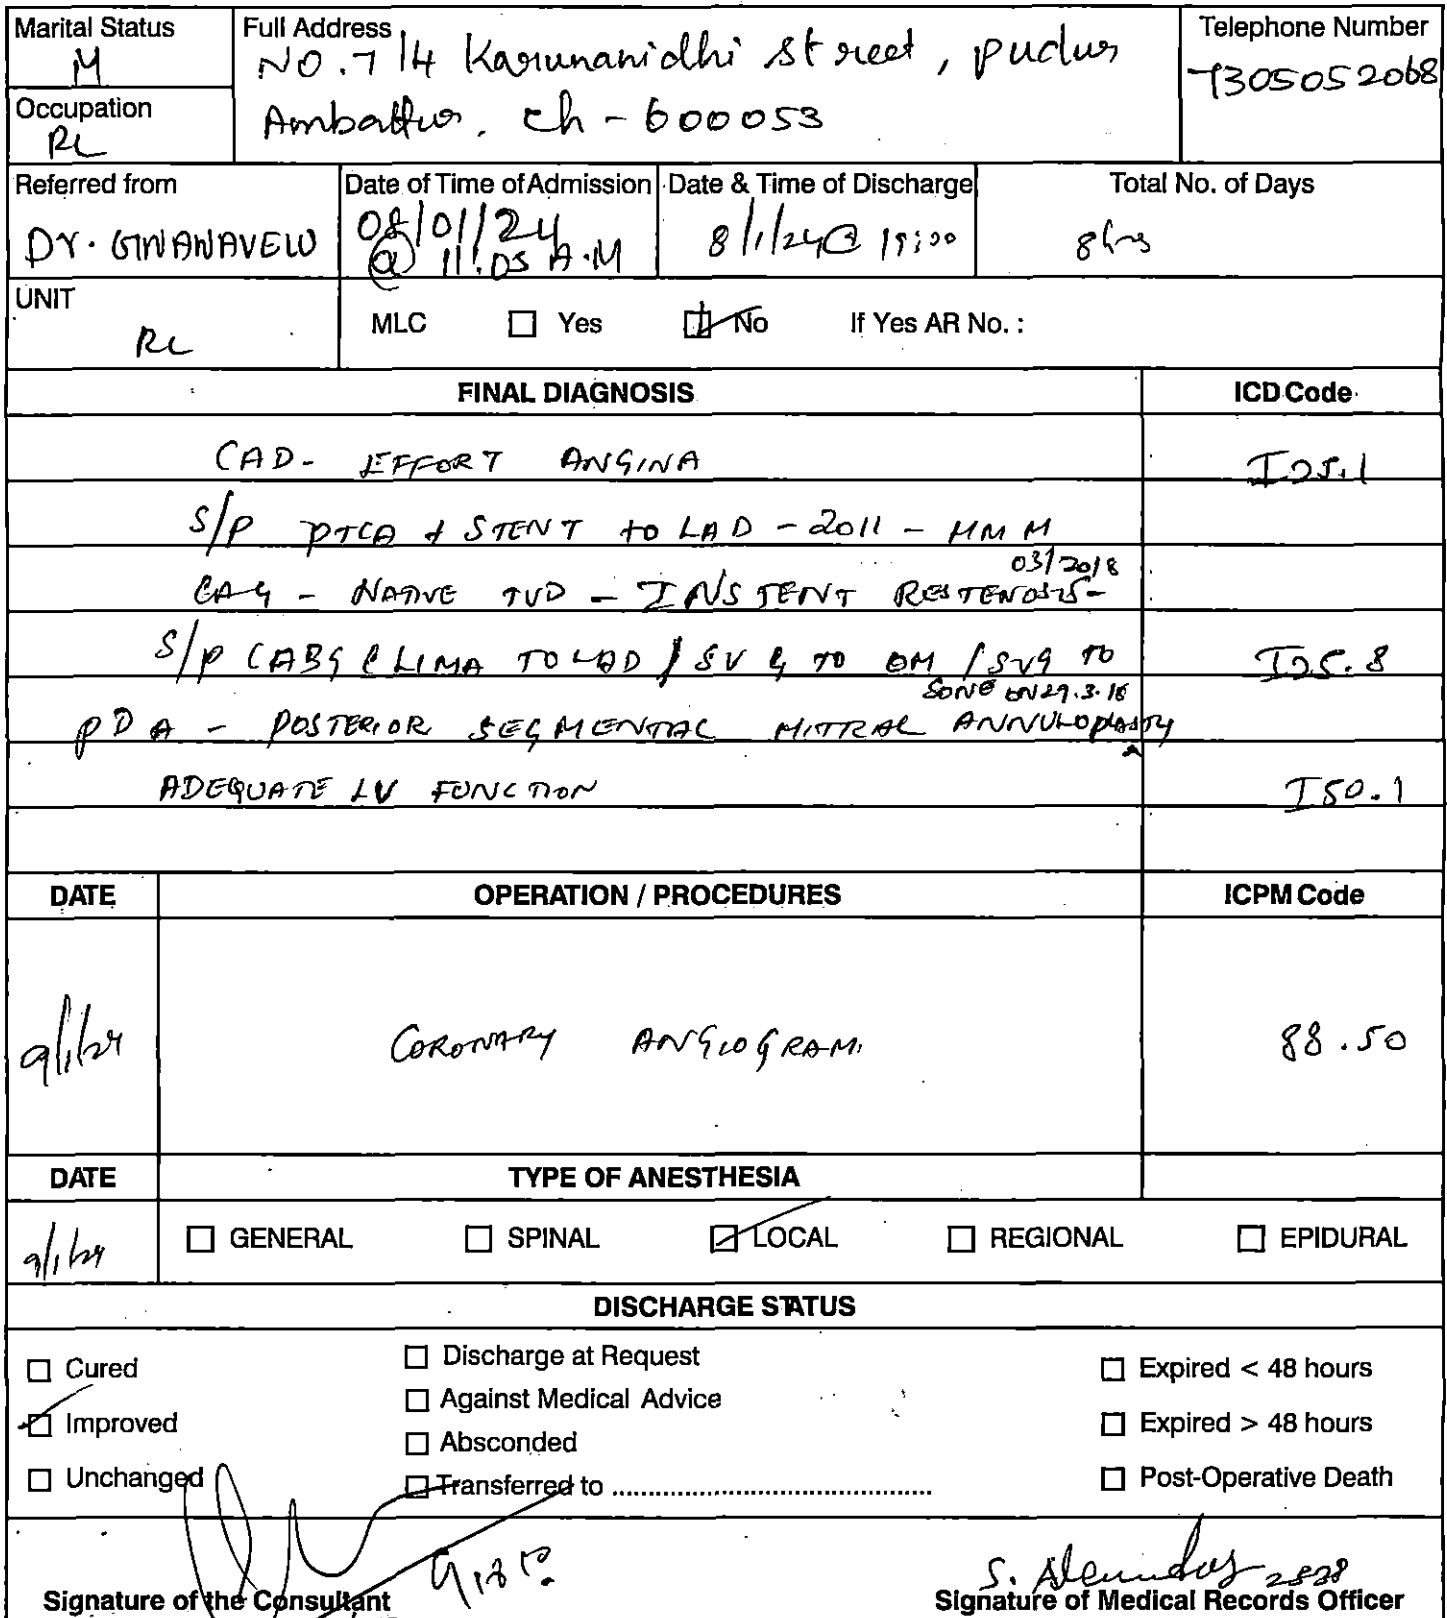 Marital Status
M
Full Address
NO.7/4 Karunanidhi Street, pudur
Ambattur, ch-600053
Telephone Number
7305052068
Occupation
RL
Referred from
Dr. GNANAVELU
Date of Time of Admission
08/01/24
@ 11:05 A.M
Date & Time of Discharge
8/1/24 @ 19:00
Total No. of Days
8hrs
UNIT
RL
MLC Yes No If Yes AR No. :
FINAL DIAGNOSIS ICD Code
CAD - EFFORT ANGINA I25.1
S/P PTCA + STENT to LAD - 2011 - MMM
CAG - NATIVE TVD - INSTENT RESTENOSIS - 03/2018
S/P CABG C LIMA TO LAD / SVG TO OM / SVG TO I25.8
DONE ON 29.3.18
PDA - POSTERIOR SEGMENTAL MITRAL ANNULOplasty
ADEQUATE LV FUNCTION I50.1
DATE OPERATION / PROCEDURES ICPM Code
9/1/24 CORONARY ANGIOGRAM 88.50
DATE TYPE OF ANESTHESIA
9/1/24 GENERAL SPINAL LOCAL REGIONAL EPIDURAL
DISCHARGE STATUS
Cured
Improved
Unchanged
Discharge at Request
Against Medical Advice
Absconded
Transferred to ........................................
Expired < 48 hours
Expired > 48 hours
Post-Operative Death
Signature of the Consultant
S.
2828
Signature of Medical Records Officer